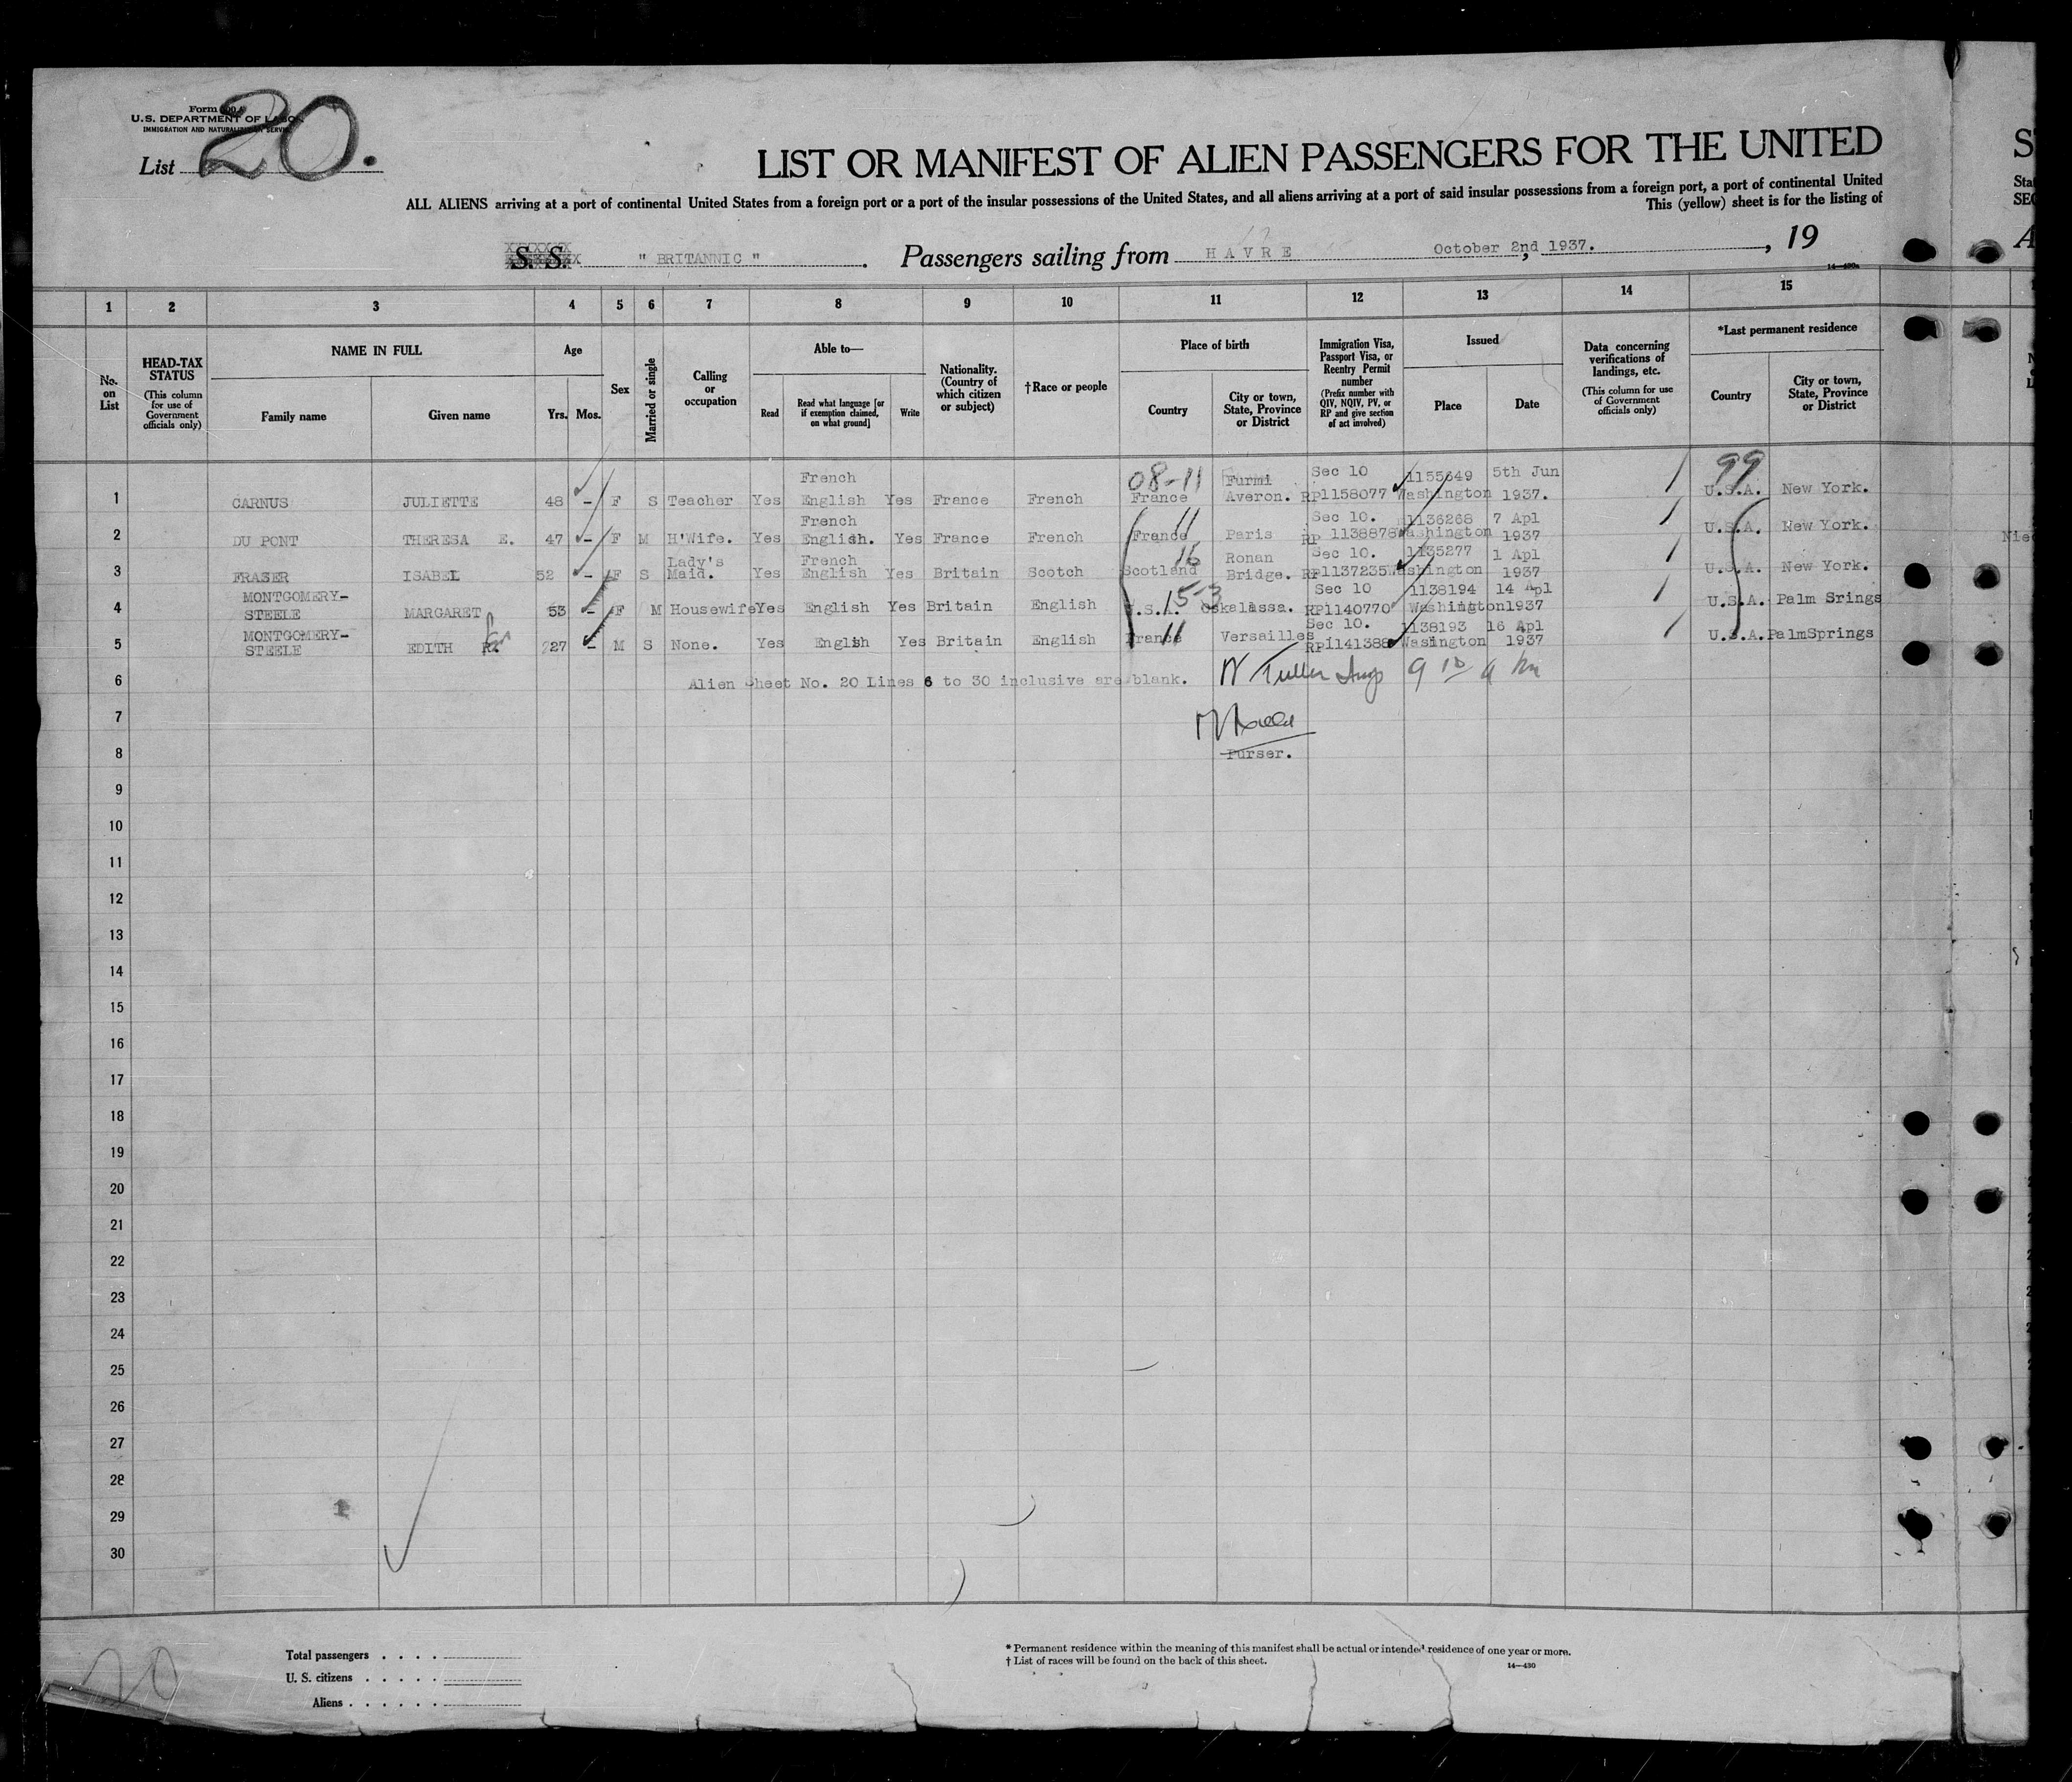 Form 500 A
U.S. DEPARTMENT OF LABOR
IMMIGRATION AND NATURALIZATION SERVICE
List 20.
LIST OR MANIFEST OF ALIEN PASSENGERS FOR THE UNITED
ALL ALIENS arriving at a port of continental United States from a foreign port or a port of the insular possessions of the United States, and all aliens arriving at a port of said insular possessions from a foreign port, a port of continental United
This (yellow) sheet is for the listing of
S. S. " BRITANNIC " . Passengers sailing from HAVRE , October 2nd 1937. , 19
14-430a
1 2 3 4 5 6 7 8 9 10 11 12 13 14 15
No. on List
HEAD-TAX STATUS (This column for use of Government officials only)
NAME IN FULL
Family name Given name
Age
Yrs. Mos.
Sex
Married or single
Calling or occupation
Able to—
Read Read what language [or if exemption claimed, on what ground] Write
Nationality. (Country of which citizen or subject)
†Race or people
Place of birth
Country City or town, State, Province or District
Immigration Visa, Passport Visa, or Reentry Permit number (Prefix number with QIV, NQIV, PV, or RP and give section of act involved)
Issued
Place Date
Data concerning verifications of landings, etc. (This column for use of Government officials only)
*Last permanent residence
Country City or town, State, Province or District
French 08-11 Furmi Sec 10 1155649 5th Jun 99
1 CARNUS JULIETTE 48 - F S Teacher Yes English Yes France French France Averon. RP1158077 Washington 1937. U.S.A. New York.
French 11 Sec 10. 1136268 7 Apl
2 DU PONT THERESA E. 47 - F M H'Wife. Yes English. Yes France French France Paris RP 1138878 Washington 1937 U.S.A. New York.
Lady's French 16 Ronan Sec 10. 1135277 1 Apl
3 FRASER ISABEL 52 - F S Maid. Yes English Yes Britain Scotch Scotland Bridge. RP1137235 Washington 1937 U.S.A. New York.
MONTGOMERY- 15-3 Sec 10 1138194 14 Apl
4 STEELE MARGARET 53 - F M Housewife Yes English Yes Britain English U.S.A. Oskalassa. RP1140770 Washington 1937 U.S.A. Palm Srings
MONTGOMERY- 11 Sec 10. 1138193 16 Apl
5 STEELE EDITH R. 27 - M S None. Yes English Yes Britain English France Versailles RP1141388 Wasington 1937 U.S.A. PalmSprings
6 Alien Sheet No. 20 Lines 6 to 30 inclusive are blank.
7
8 Purser.
9
10
11
12
13
14
15
16
17
18
19
20
21
22
23
24
25
26
27
28
29
30
20
Total passengers . . . .
U. S. citizens . . . . .
Aliens . . . . . .
* Permanent residence within the meaning of this manifest shall be actual or intended residence of one year or more.
† List of races will be found on the back of this sheet.
14-430